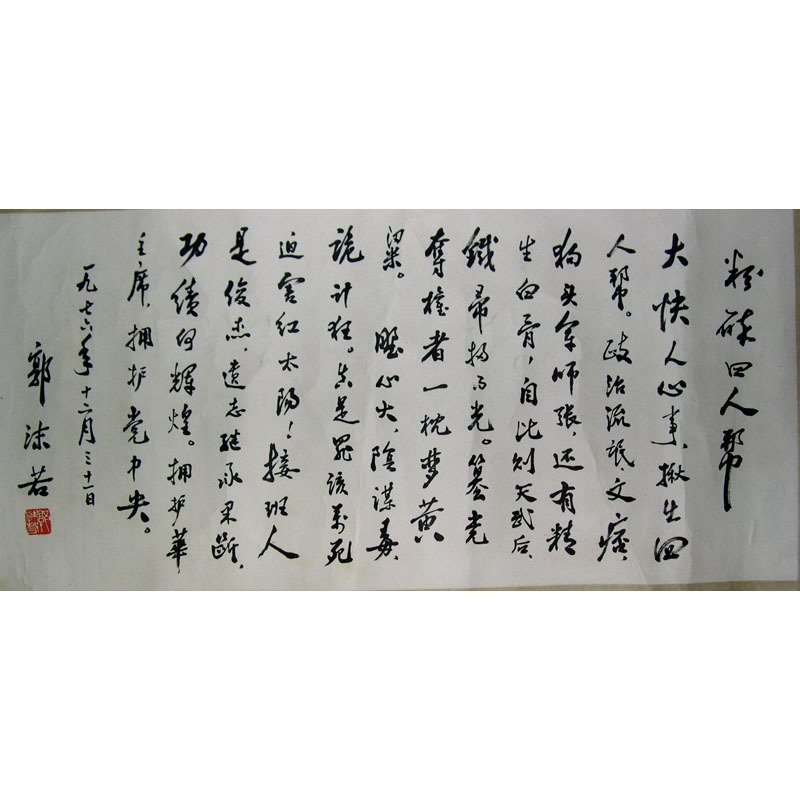 粉碎四人帮
大快人心事，揪出四
人帮。政治流氓、文痞、
狗头军师张，还有精
生白骨，自比则天武后，
铁帚扫而光。篡党
夺权者，一枕梦黄
粱。 野心大，阴谋毒，
诡计狂。真是罪该万死
迫害红太阳！接班人
是俊杰，遗志继承果断，
功绩何辉煌。拥护华
主席，拥护党中央。
一九七六年十二月三十一日
郭沫若